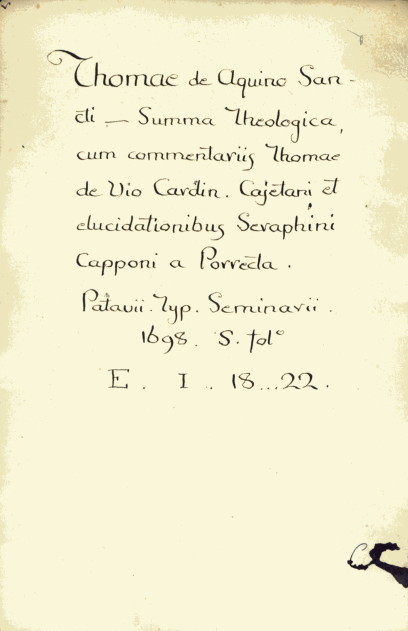 Thomae de Aquino San-
cti — Summa Theologica,
cum commentariis Thomae
de Vio Cardin. Cajetani et
elucidationibus Seraphini
Capponi a Porrecta.
Patavii. Typ. Seminarii.
1698. 5. fol°
E. I. 18...22.